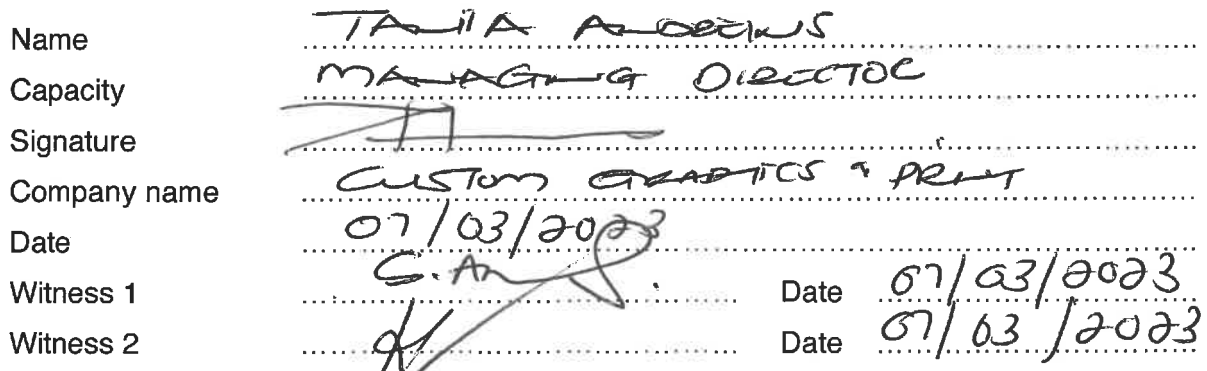 Name TANIA
Capacity MANAGING DIRECTOR
Signature
Company name CUSTOM GRAPHICS & PRINT
Date 07/03/2023
Witness 1 Date 07/03/2023
Witness 2 Date 07/03/2023